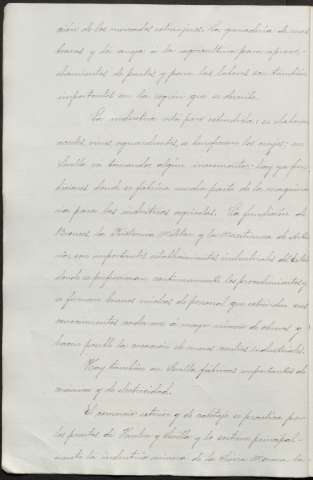 ción de los mercados extranjeros. La ganadería de
braras y la aneja a la agricultura para aprove-
chamientos de pastos y para las labores son también
importantes en la región que se describe.
La industria está poco extendida: se elaboran
aceites, vinos, aguardientes, se benefician las minas; en
Sevilla va tomando algún incremento: hay ya fun-
diciones donde se fabrica mucha parte de la maquina-
ria para las industrias agrícolas. La fundición de
Bronces, la Pirotecnia Militar y la Maestranza de Arti-
llería son importantes establecimientos industriales del Estado
donde se perfeccionan continuamente los procedimientos y
se forman buenos núcleos de personal que extienden sus
conocimientos a mayor número de obreros y
hacen posible la creación de nuevos centros industriales.
Hay también en Sevilla fábricas importantes de
y de electricidad.
El comercio exterior y de cabotaje se practica por
los puertos de Huelva y Sevilla y lo sostiene principal-
mente la industria minera de la Sierra Morena la